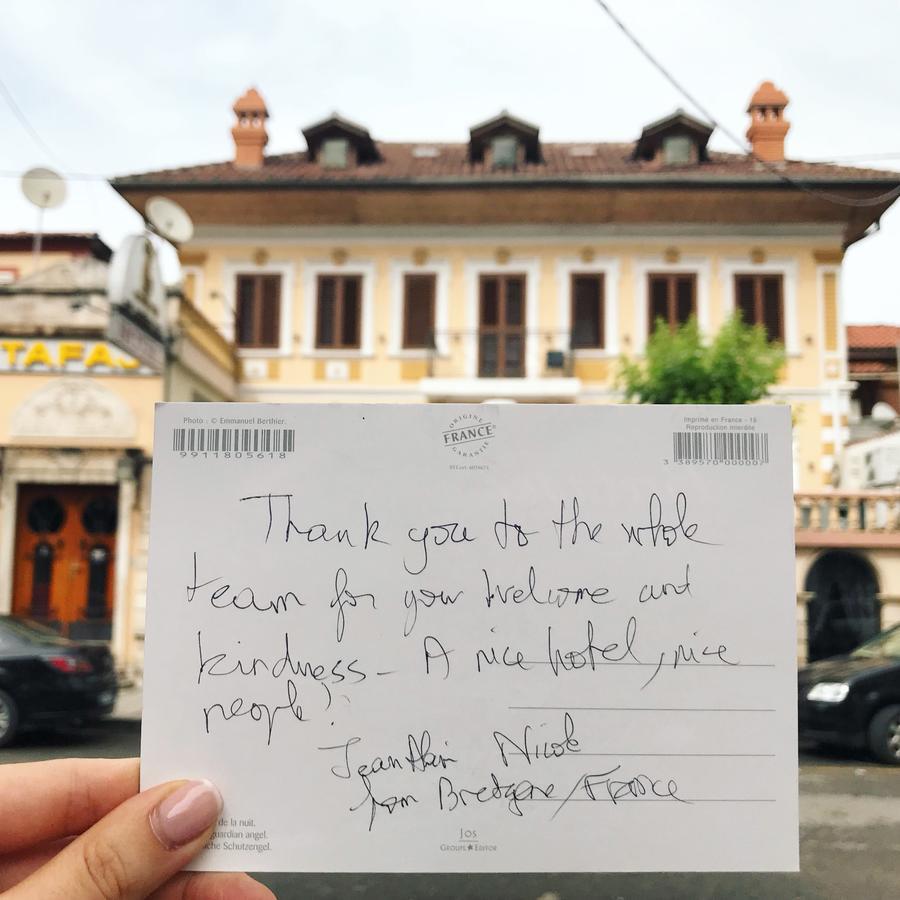 TAFAJ
Photo : © Emmanuel Berthier.
9911805618
ORIGINE
FRANCE
GARANTIE
Imprimé en France - 16
Reproduction interdite
3 389570 000007
Thank you to the whole
team for your welcome and
kindness - A nice hotel, nice
people!
Nicole
from Bretagne / France
de la nuit.
guardian angel.
che Schutzengel.
Jos
GROUPE EDITOR